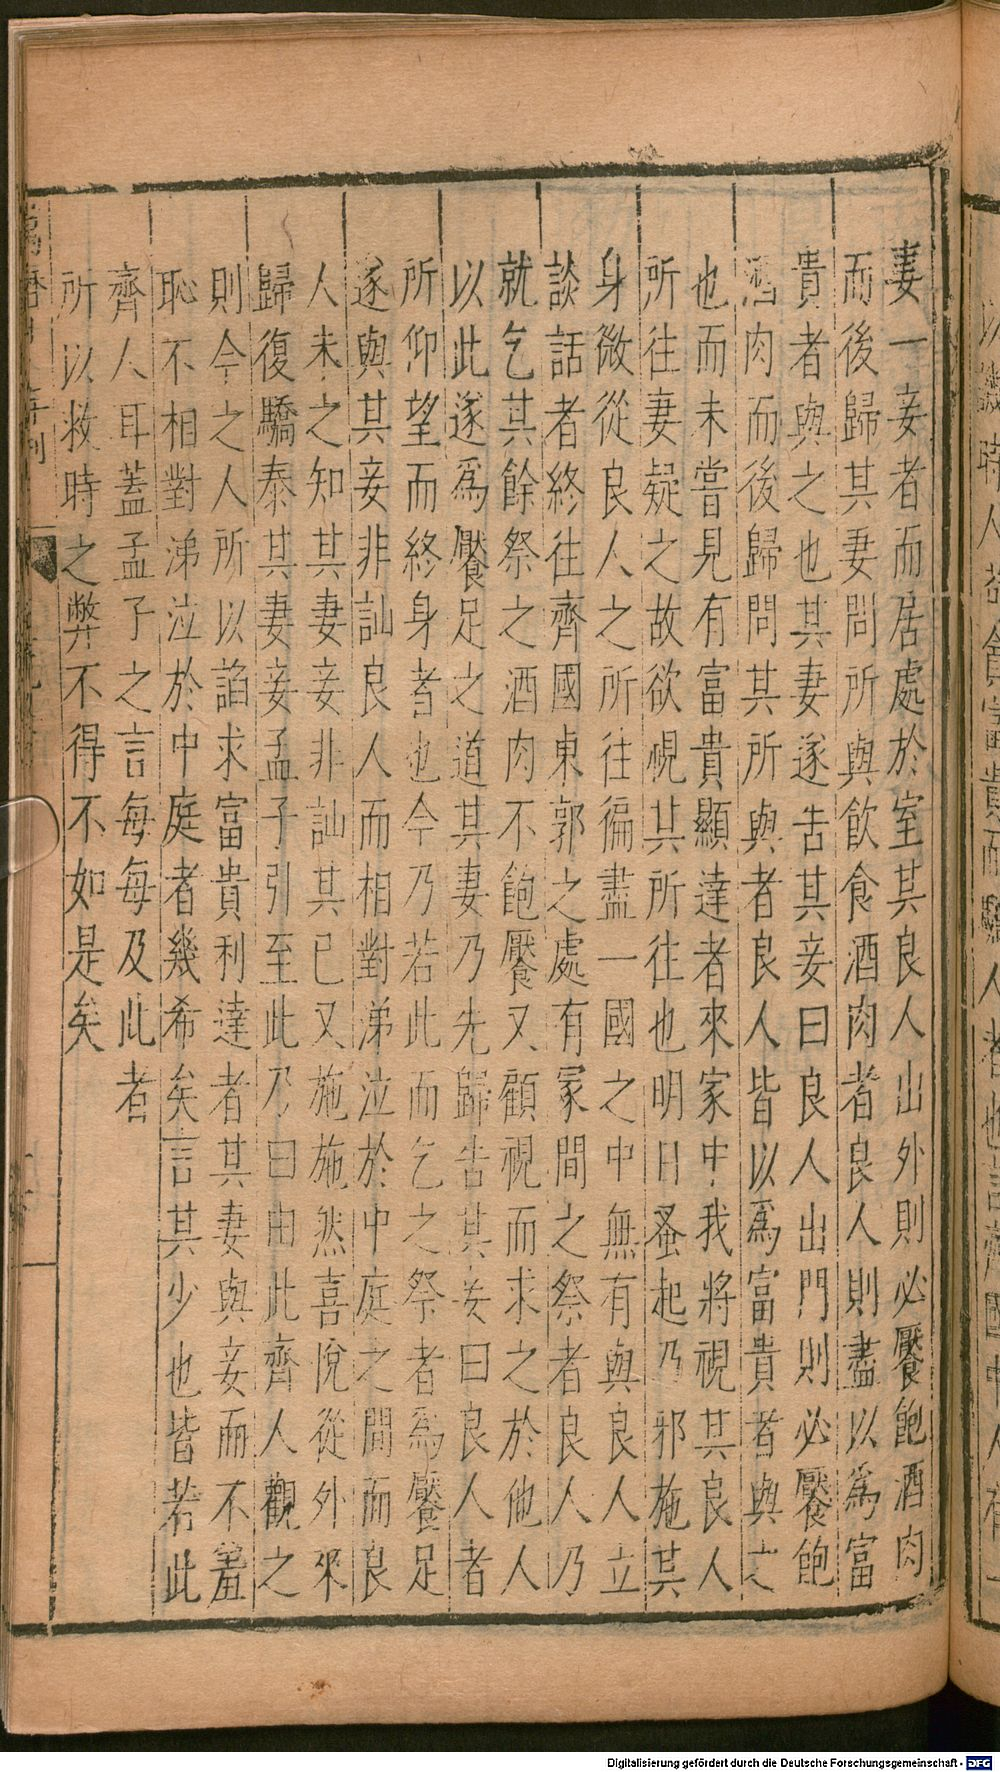 妻一妾者而居處於室其良人出外則必饜飽酒肉
而後歸其妻問所與飲食酒肉者良人則盡以爲富
貴者與之也其妻遂告其妾曰良人出門則必饜飽
酒肉而後歸問其所與者良人皆以爲富貴者與之
也而未嘗見有富貴顯達者來家中我將視其良人
所往妻疑之故欲視其所往也明日蚤起乃邪施其
身微從良人之所往徧盡一國之中無有與良人立
談話者終往齊國東郭之處有冢間之祭者良人乃
就乞其餘祭之酒肉不飽饜又顧視而求之於他人
以此遂爲饜足之道其妻乃先歸告其妾曰良人者
所仰望而終身者也今乃若此而乞之祭者爲饜足
遂與其妾非訕良人而相對涕泣於中庭之間而良
人未之知其妻妾非訕其已又施施然喜悅從外來
歸復驕泰其妻妾孟子引至此乃曰由此齊人觀之
則今之人所以謟求富貴利達者其妻與妾而不羞
恥不相對涕泣於中庭者幾希矣言其少也皆若此
齊人耳蓋孟子之言每每及此者
所以救時之弊不得不如是矣
Digitalisierung gefördert durch die Deutsche Forschungsgemeinschaft - DFG